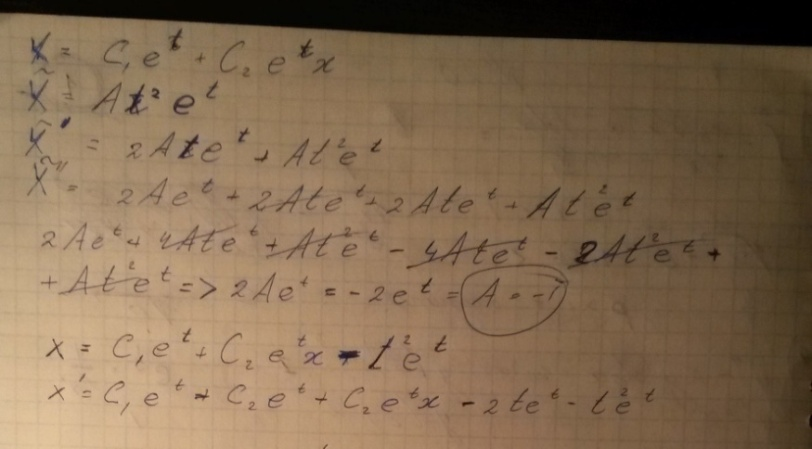 x = C₁eᵗ + C₂eᵗx
x̃ = At²eᵗ
x̃' = 2Ateᵗ + At²eᵗ
x̃'' = 2Aeᵗ + 2Ateᵗ + 2Ateᵗ + At²eᵗ
2Aeᵗ + 4Ateᵗ + At²eᵗ - 4Ateᵗ - 2At²eᵗ +
+ At²eᵗ => 2Aeᵗ = -2eᵗ = A = -1
x = C₁eᵗ + C₂eᵗx - t²eᵗ
x' = C₁eᵗ + C₂eᵗ + C₂eᵗx - 2teᵗ - t²eᵗ